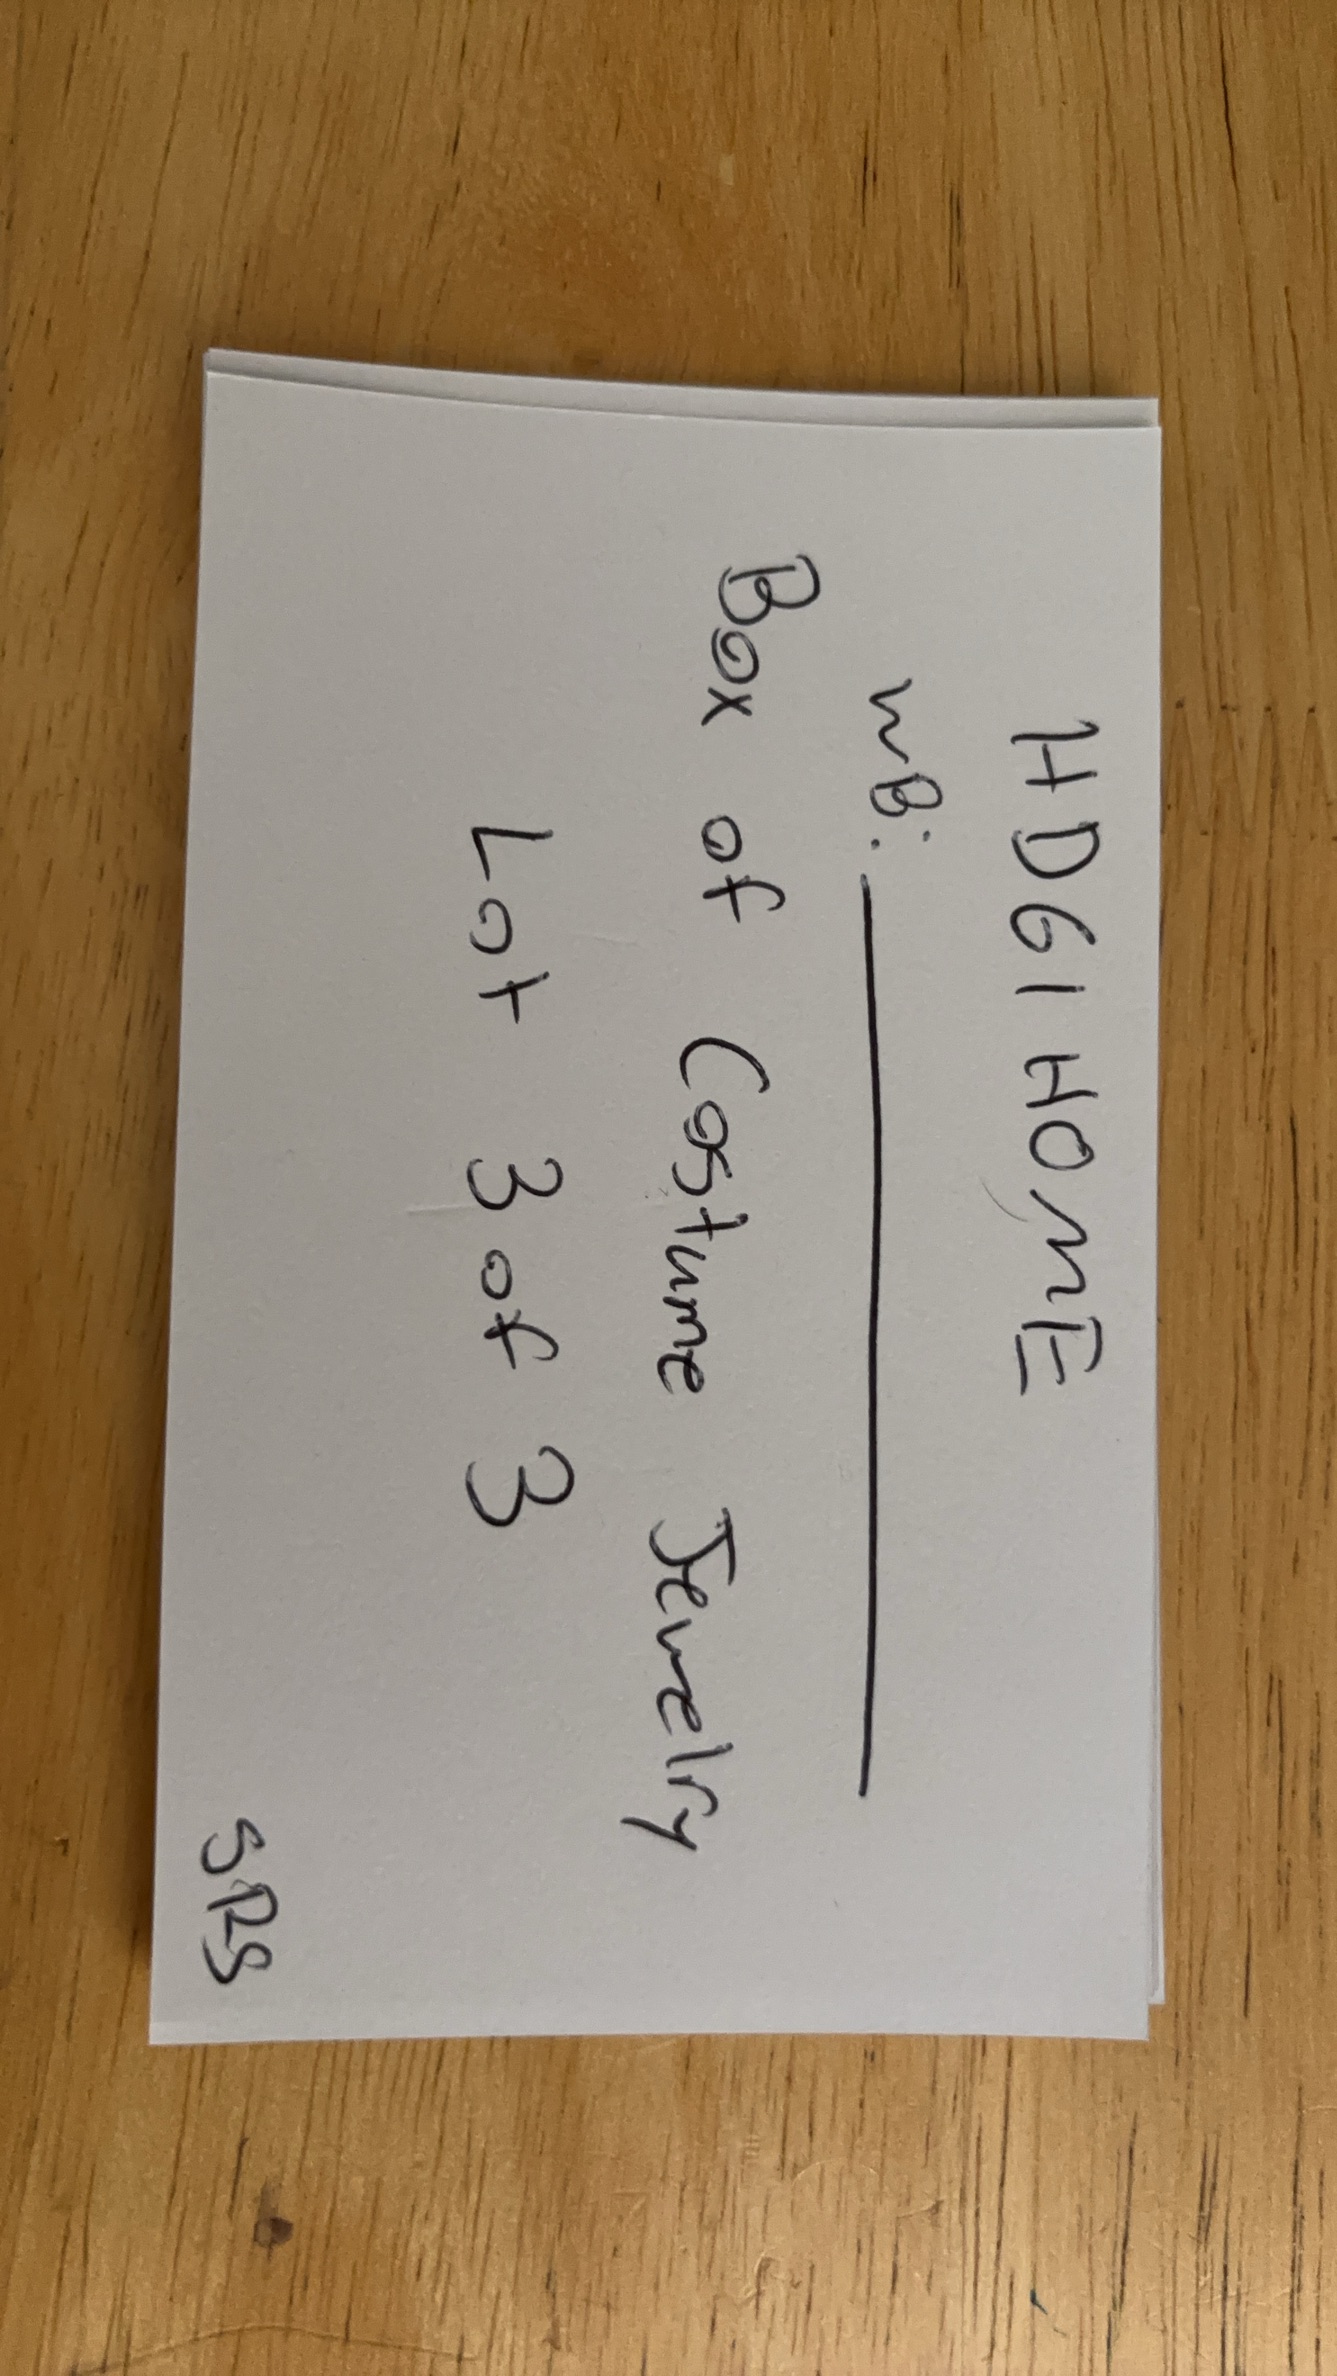 HD61HOME
MB: ________
Box of Costume Jewelry
Lot 3 of 3
SRS